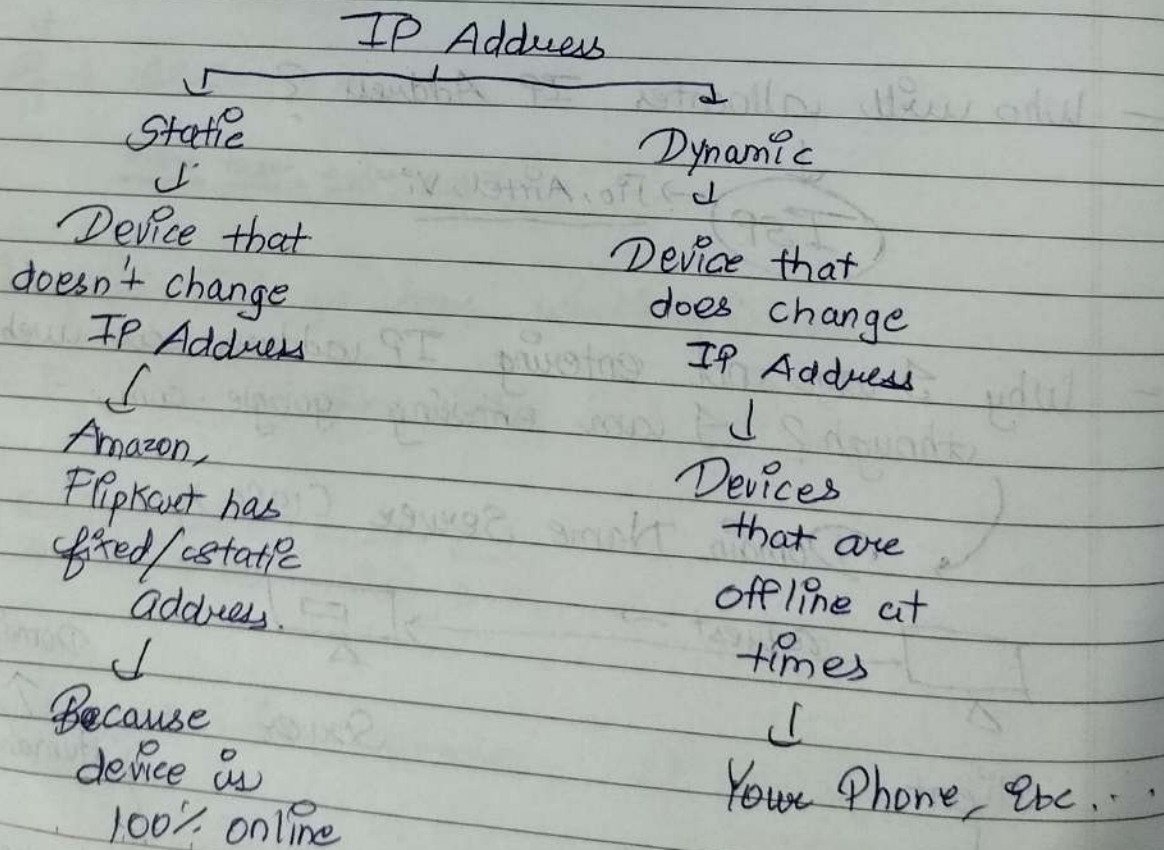 IP Address
Static
Device that
doesn't change
IP Address
Amazon,
Flipkart has
fixed/static
address.
Because
device is
100% online
Dynamic
Device that
does change
IP Address
Devices
that are
offline at
times
Your Phone, Etc...